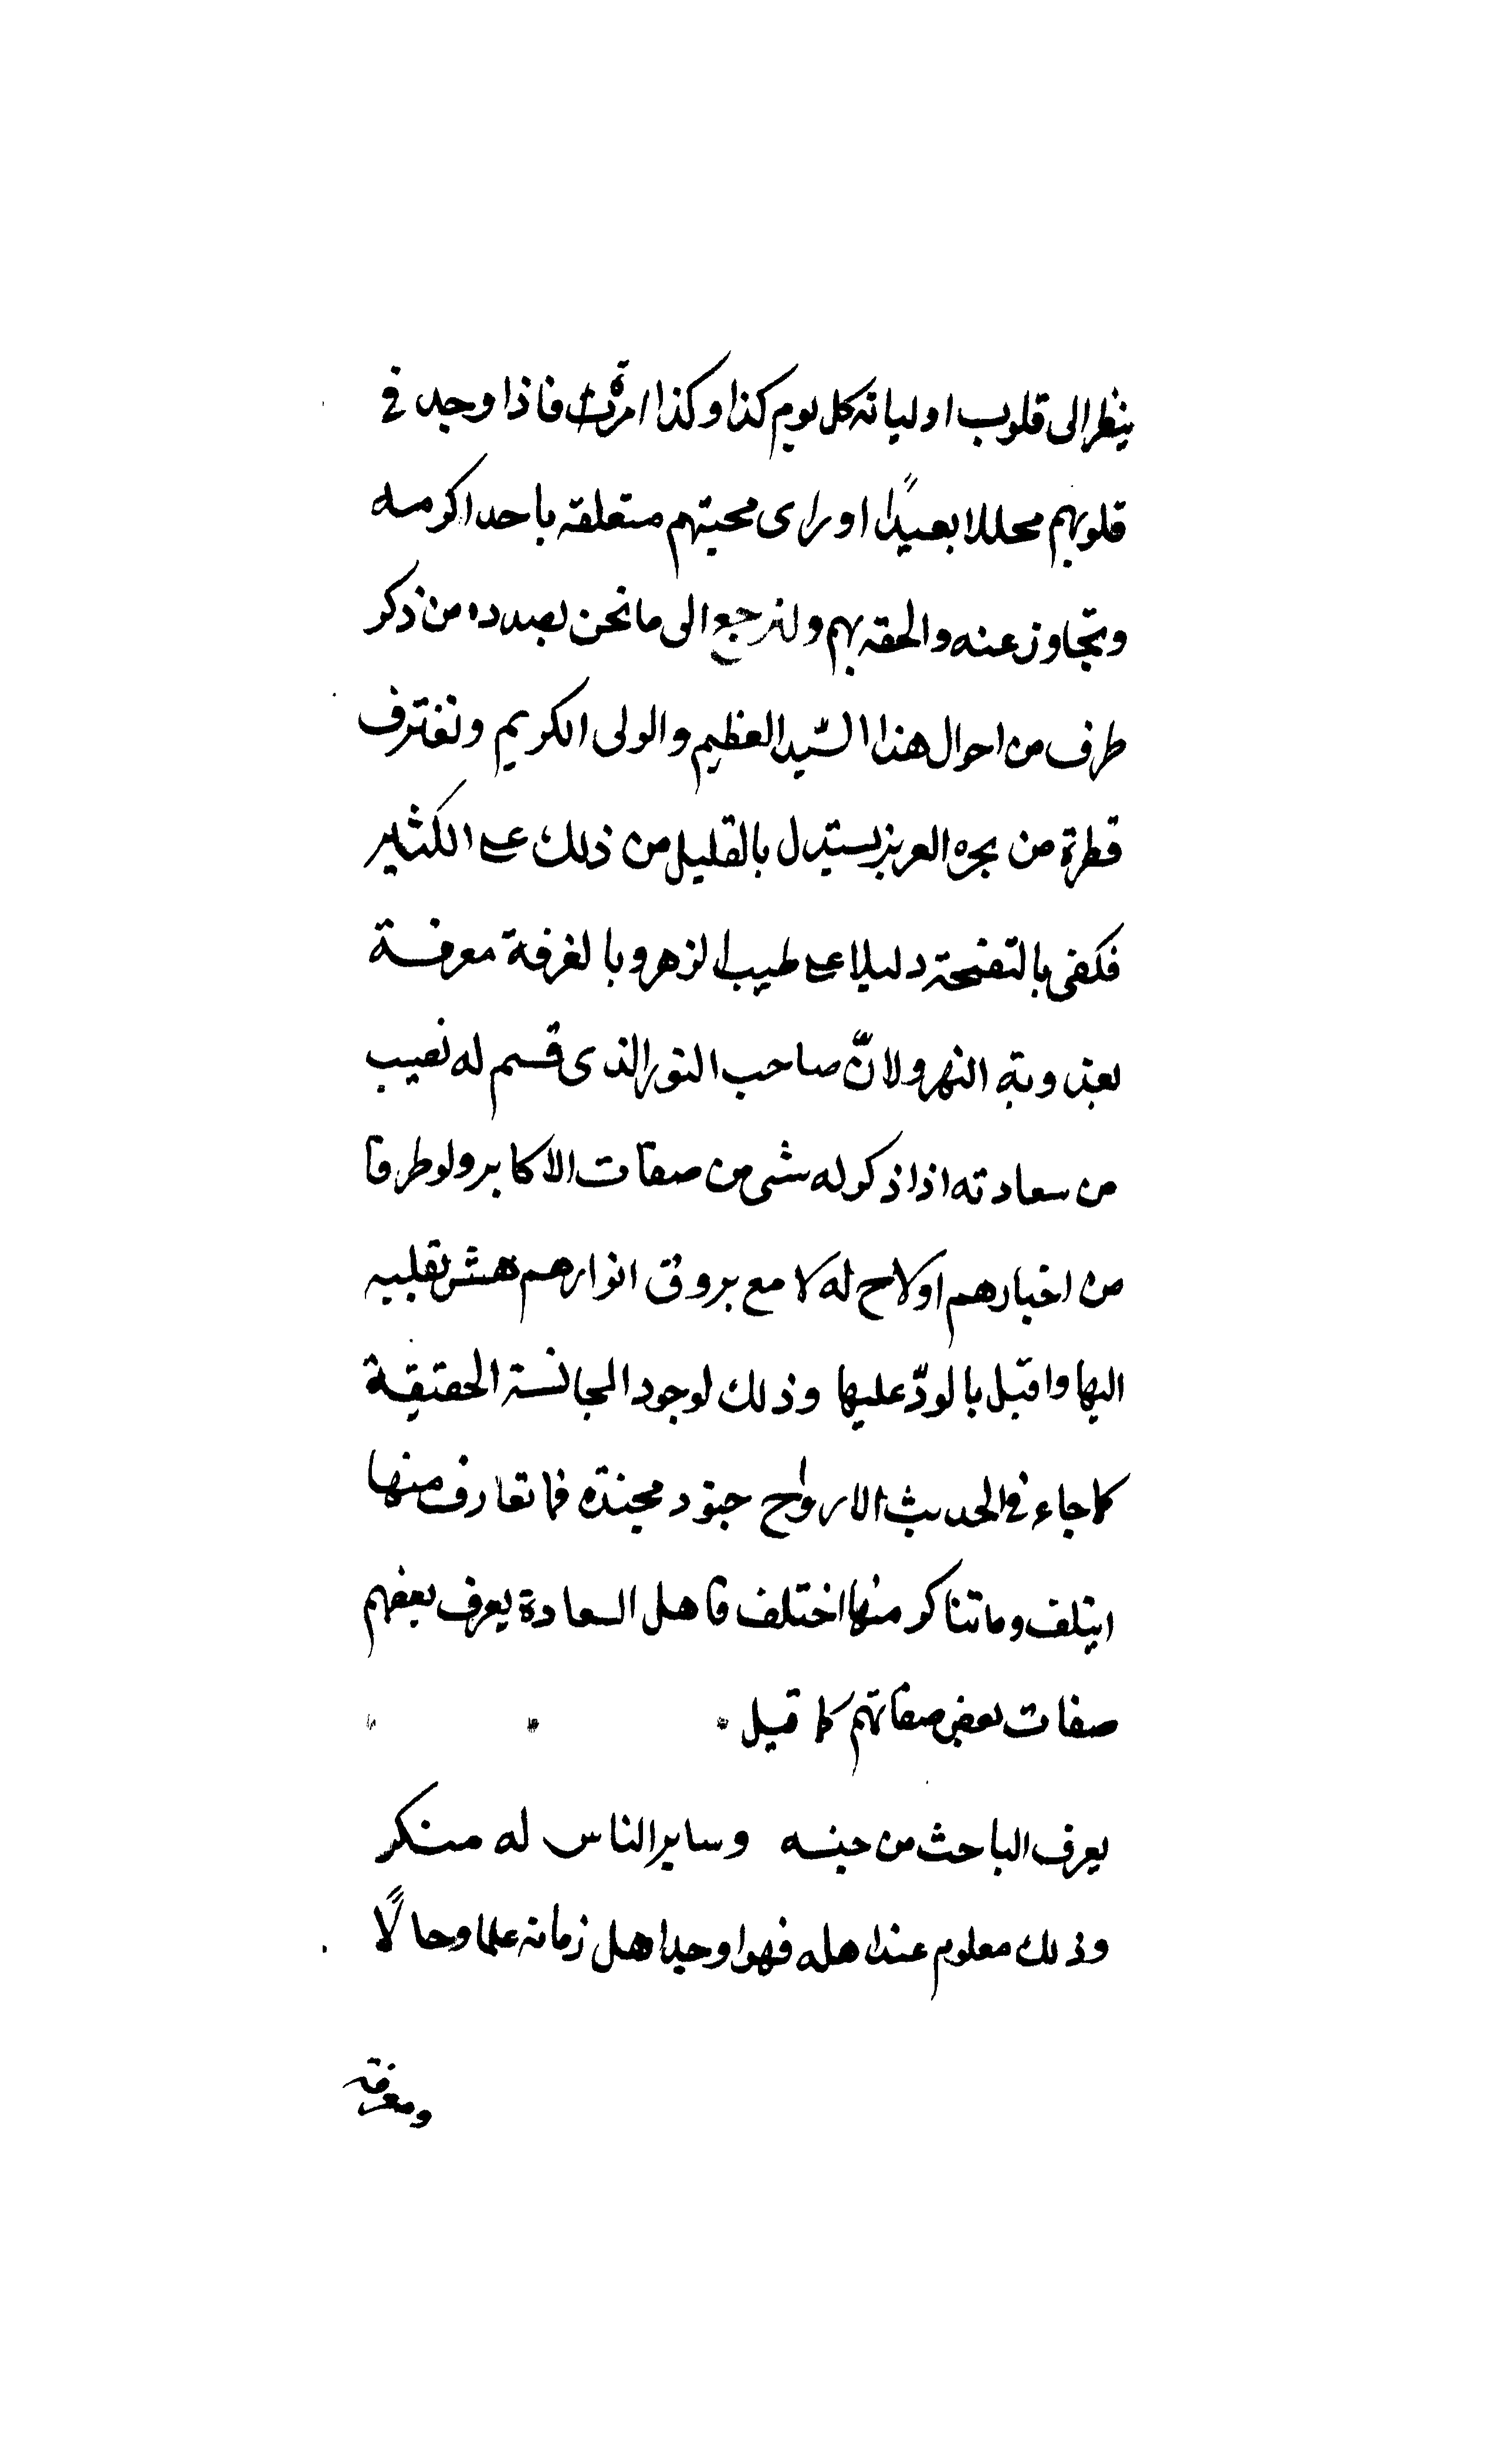 ينظر الى قلوب اوليائه كل يوم كذا وكذا مرة فاذا وجد في
قلوبهم محللا بعيدًا او راى محبتهم متعلقة باحد اكرمه
وتجاوز عنه والحقه بهم ولنرجع الى ما نحن بصدده من ذكر
طرف من احوال هذا السّيد العظيم والولى الكريم ونغترف
قطرة من بحره العزيز يستدل بالقليل من ذلك على الكثير
فكفى بالنفحة دليلا على طيب الزهر وبالغرفة معرفة
بعذوبة النهر ولانّ صاحب النور الذى قسم له نصيب
من سعادته اذا ذكر له شى من صفات الاكابر ولو طرفا
من اخبارهم او لاح له لامع بروق انوارهم هش بقلبه
اليها واقبل بالودّ عليها وذلك لوجود المجانسة الحقيقة
كما جاء في الحديث الارواح جنود مجندة فما تعارف منها
ايتلف وما تناكر منها اختلف فاهل السعادة يعرف بعضهم
صفات بعض صفاتهم كما قيل
يعرف الباحث من جنسه وساير الناس له منكر
وذلك معلوم عند اهله فهو اوحد اهل زمانه علما وحالًا
ومعرفة